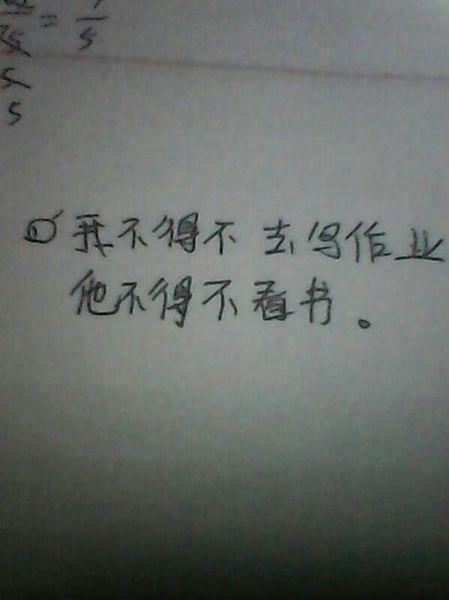 = 1/5
5
5
① 我不得不去写作业
他不得不看书。